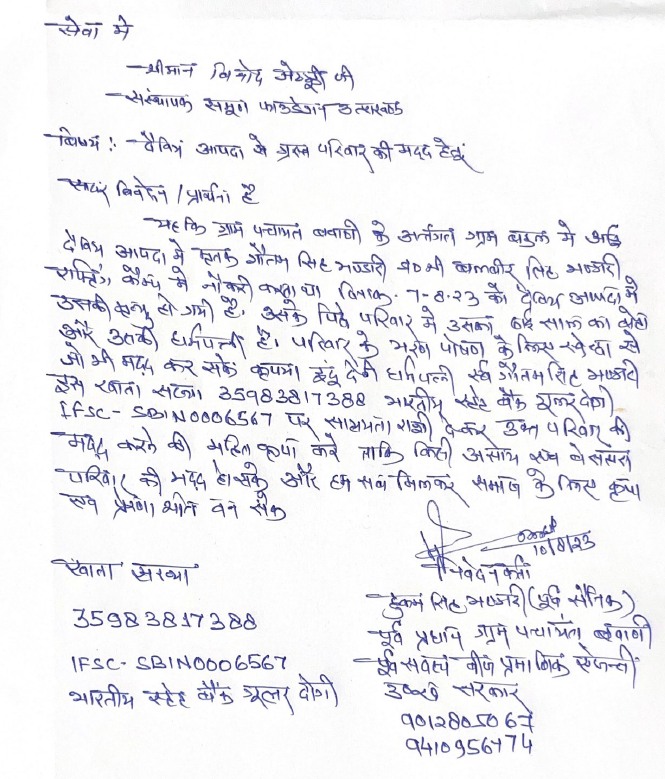 सेवा में
श्रीमान विनोद जेठूड़ी जी
संस्थापक समून फाउडेशन उत्तराखण्ड
विषय :- दैविय आपदा से ग्रस्त परिवार की मदद हेतु
सादर निवेदन / प्रार्थना है
यह कि ग्राम पंचायत बवाणी के अर्न्तगत ग्राम में
दैविय आपदा में मृतक गौतम सिह भण्डारी S/O श्री बलवीर सिह भण्डारी
राफ्टिंग कैम्प में नौकरी करता था दिनाक 7-8-23 को दैविय आपदा में
उसकी मृत्यु हो गयी है। उसके पिछे परिवार में उसका साल का बेटा
और उसकी धर्मपत्नी है। परिवार के भरण पोषण के लिए स्वेच्छा से
जो भी मदद कर सके कृपया इंदू देवी धर्मपत्नी स्व गौतम सिह भण्डारी
इस खाता सख्या 35983817388 भारतीय स्टेट बैंक गूलर दोगी
IFSC- SBIN0006567 पर सहायता राशी देकर उक्त परिवार की
मदद करने की महति कृपा करे ताकि किसी असहाय एवं बेसहारा
परिवार की मदद हो सके और हम सब मिलकर समाज के लिए कृपा
एवं प्रेरणा स्रोत बन सके
10/8/23
निवेदनकर्ता
खाता सख्या
हुकम सिह भण्डारी (पूर्व सैनिक)
35983817388
पूर्व प्रधान ग्राम पंचायत बवाणी
IFSC- SBIN0006567
पूर्व सदस्य बीज प्रमाणिक एजेन्सी
भारतीय स्टेट बैंक गूलर दोगी
सरकार
9012805067
9410956774